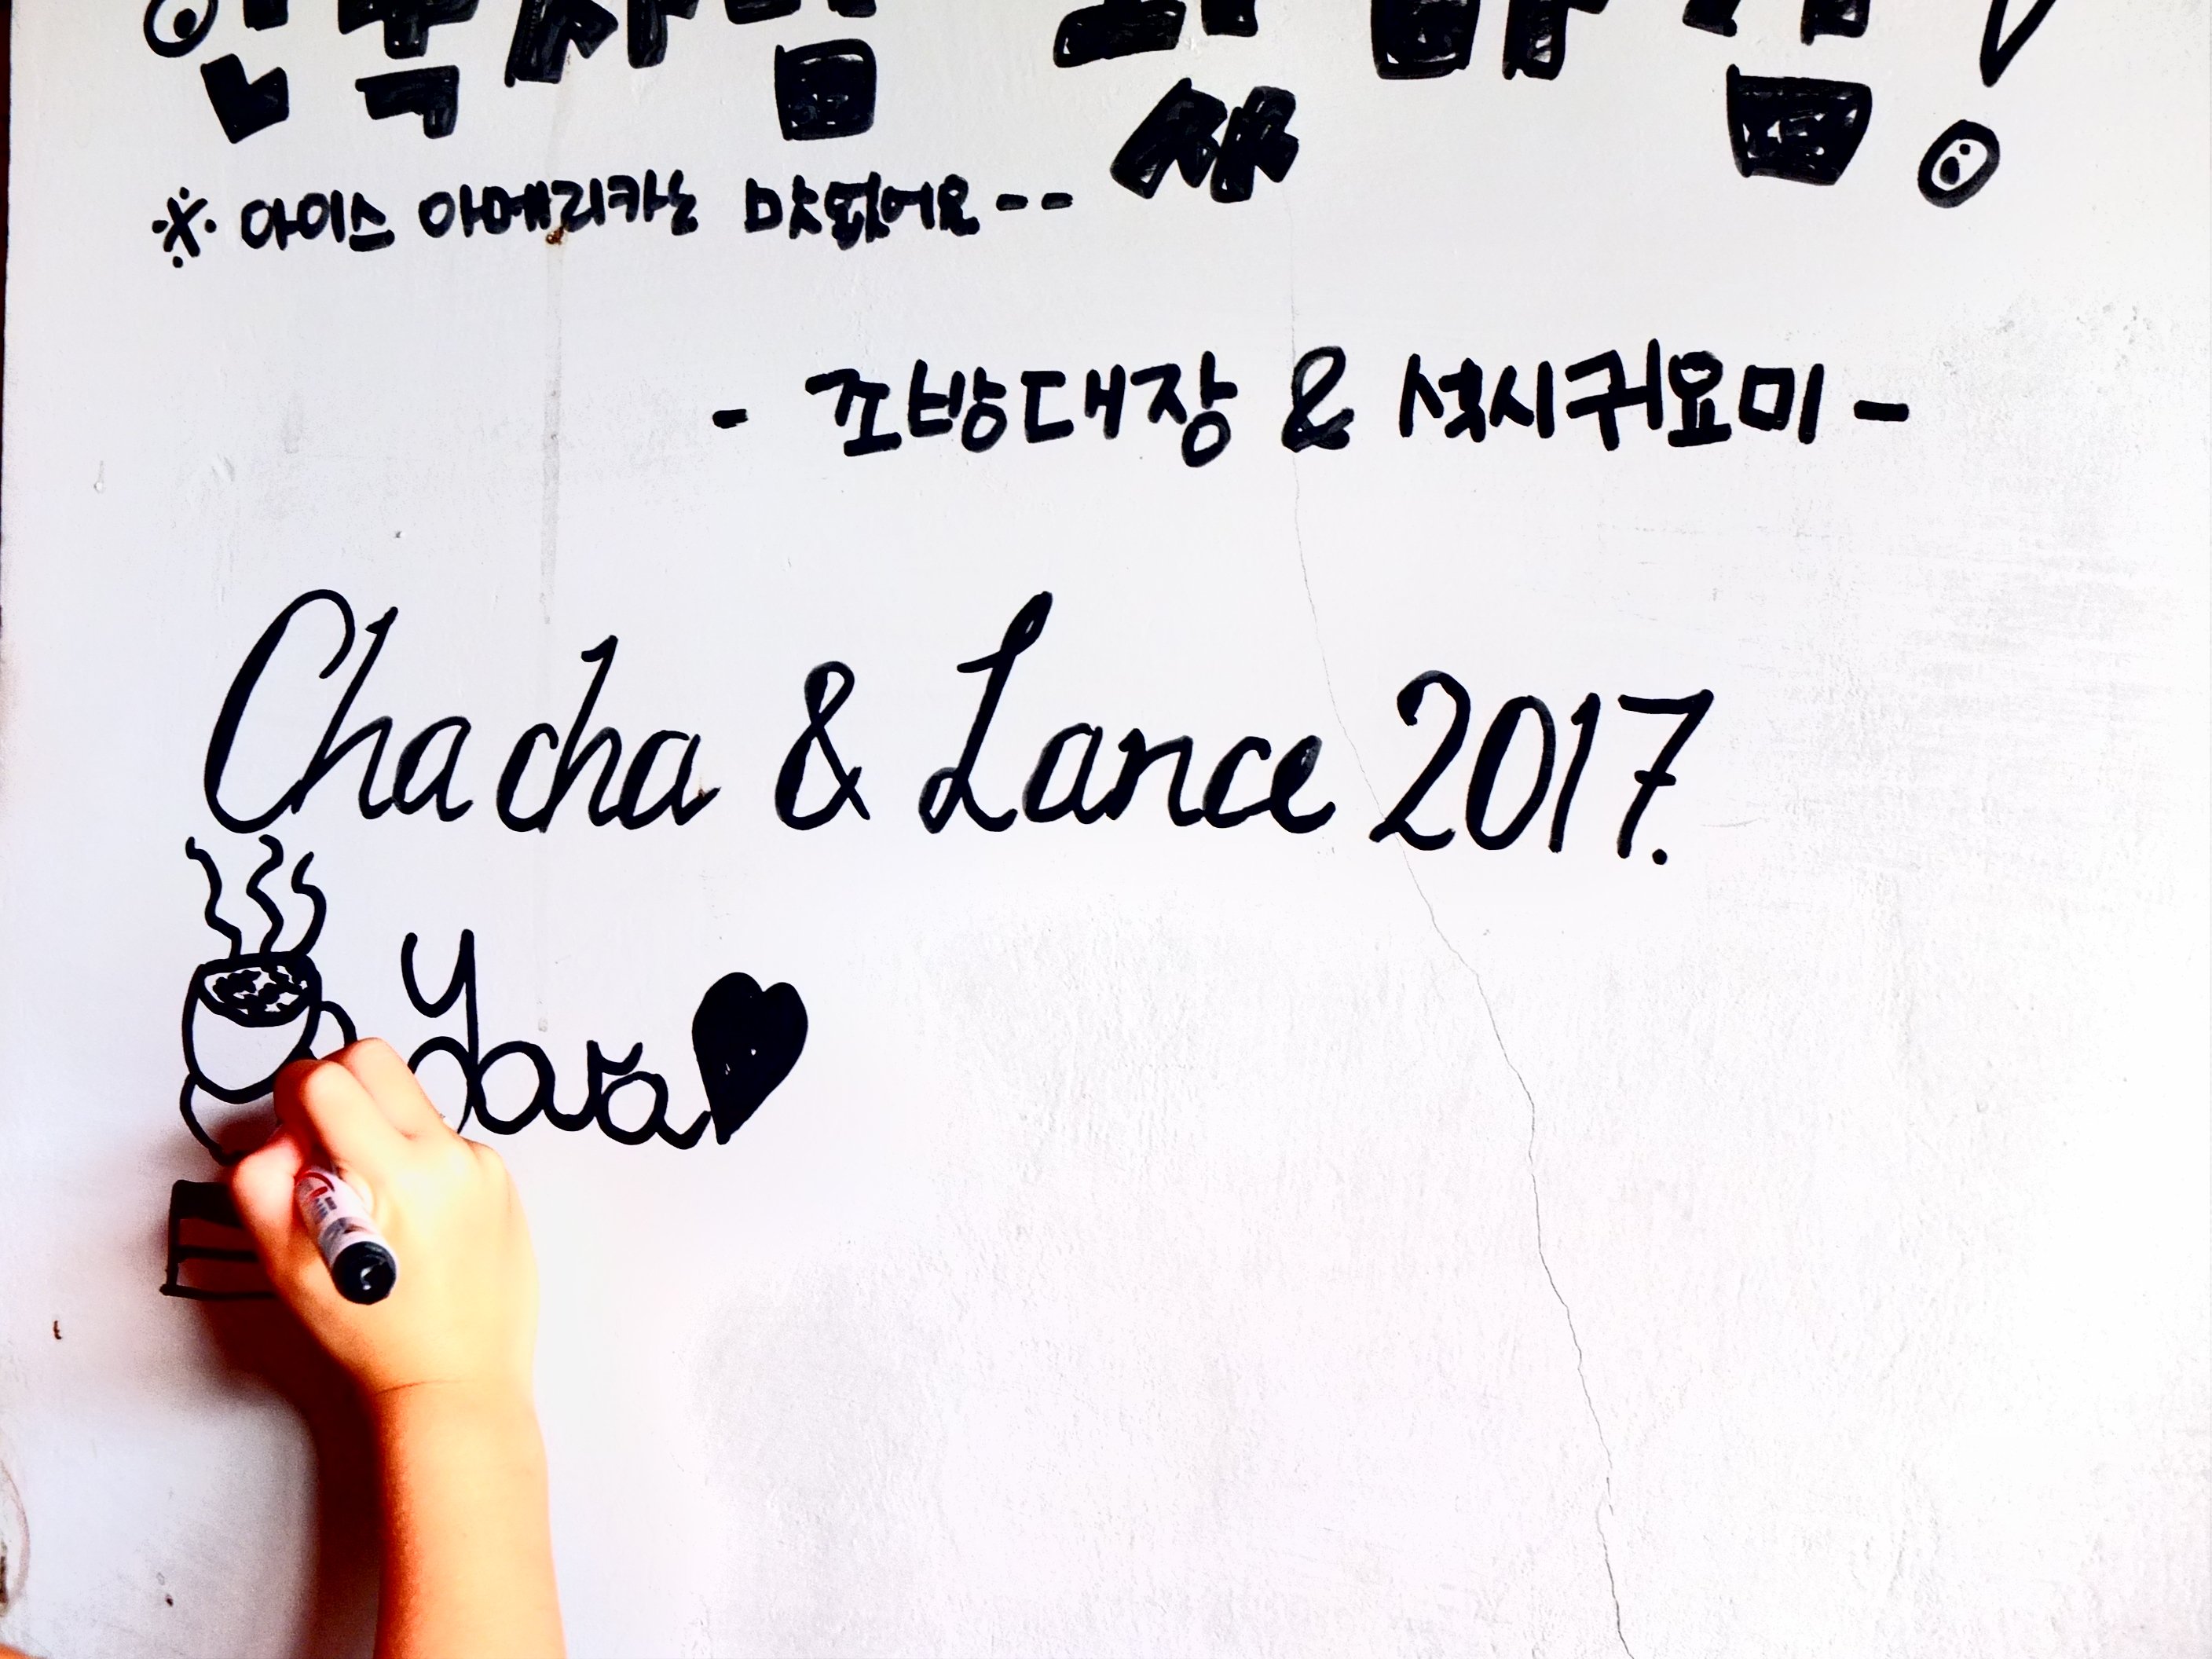 ※ 아이스 아메리카노 맛없어요--
- 조방대장 & 석시귀요미 -
Chacha & Lance 2017.
Yara